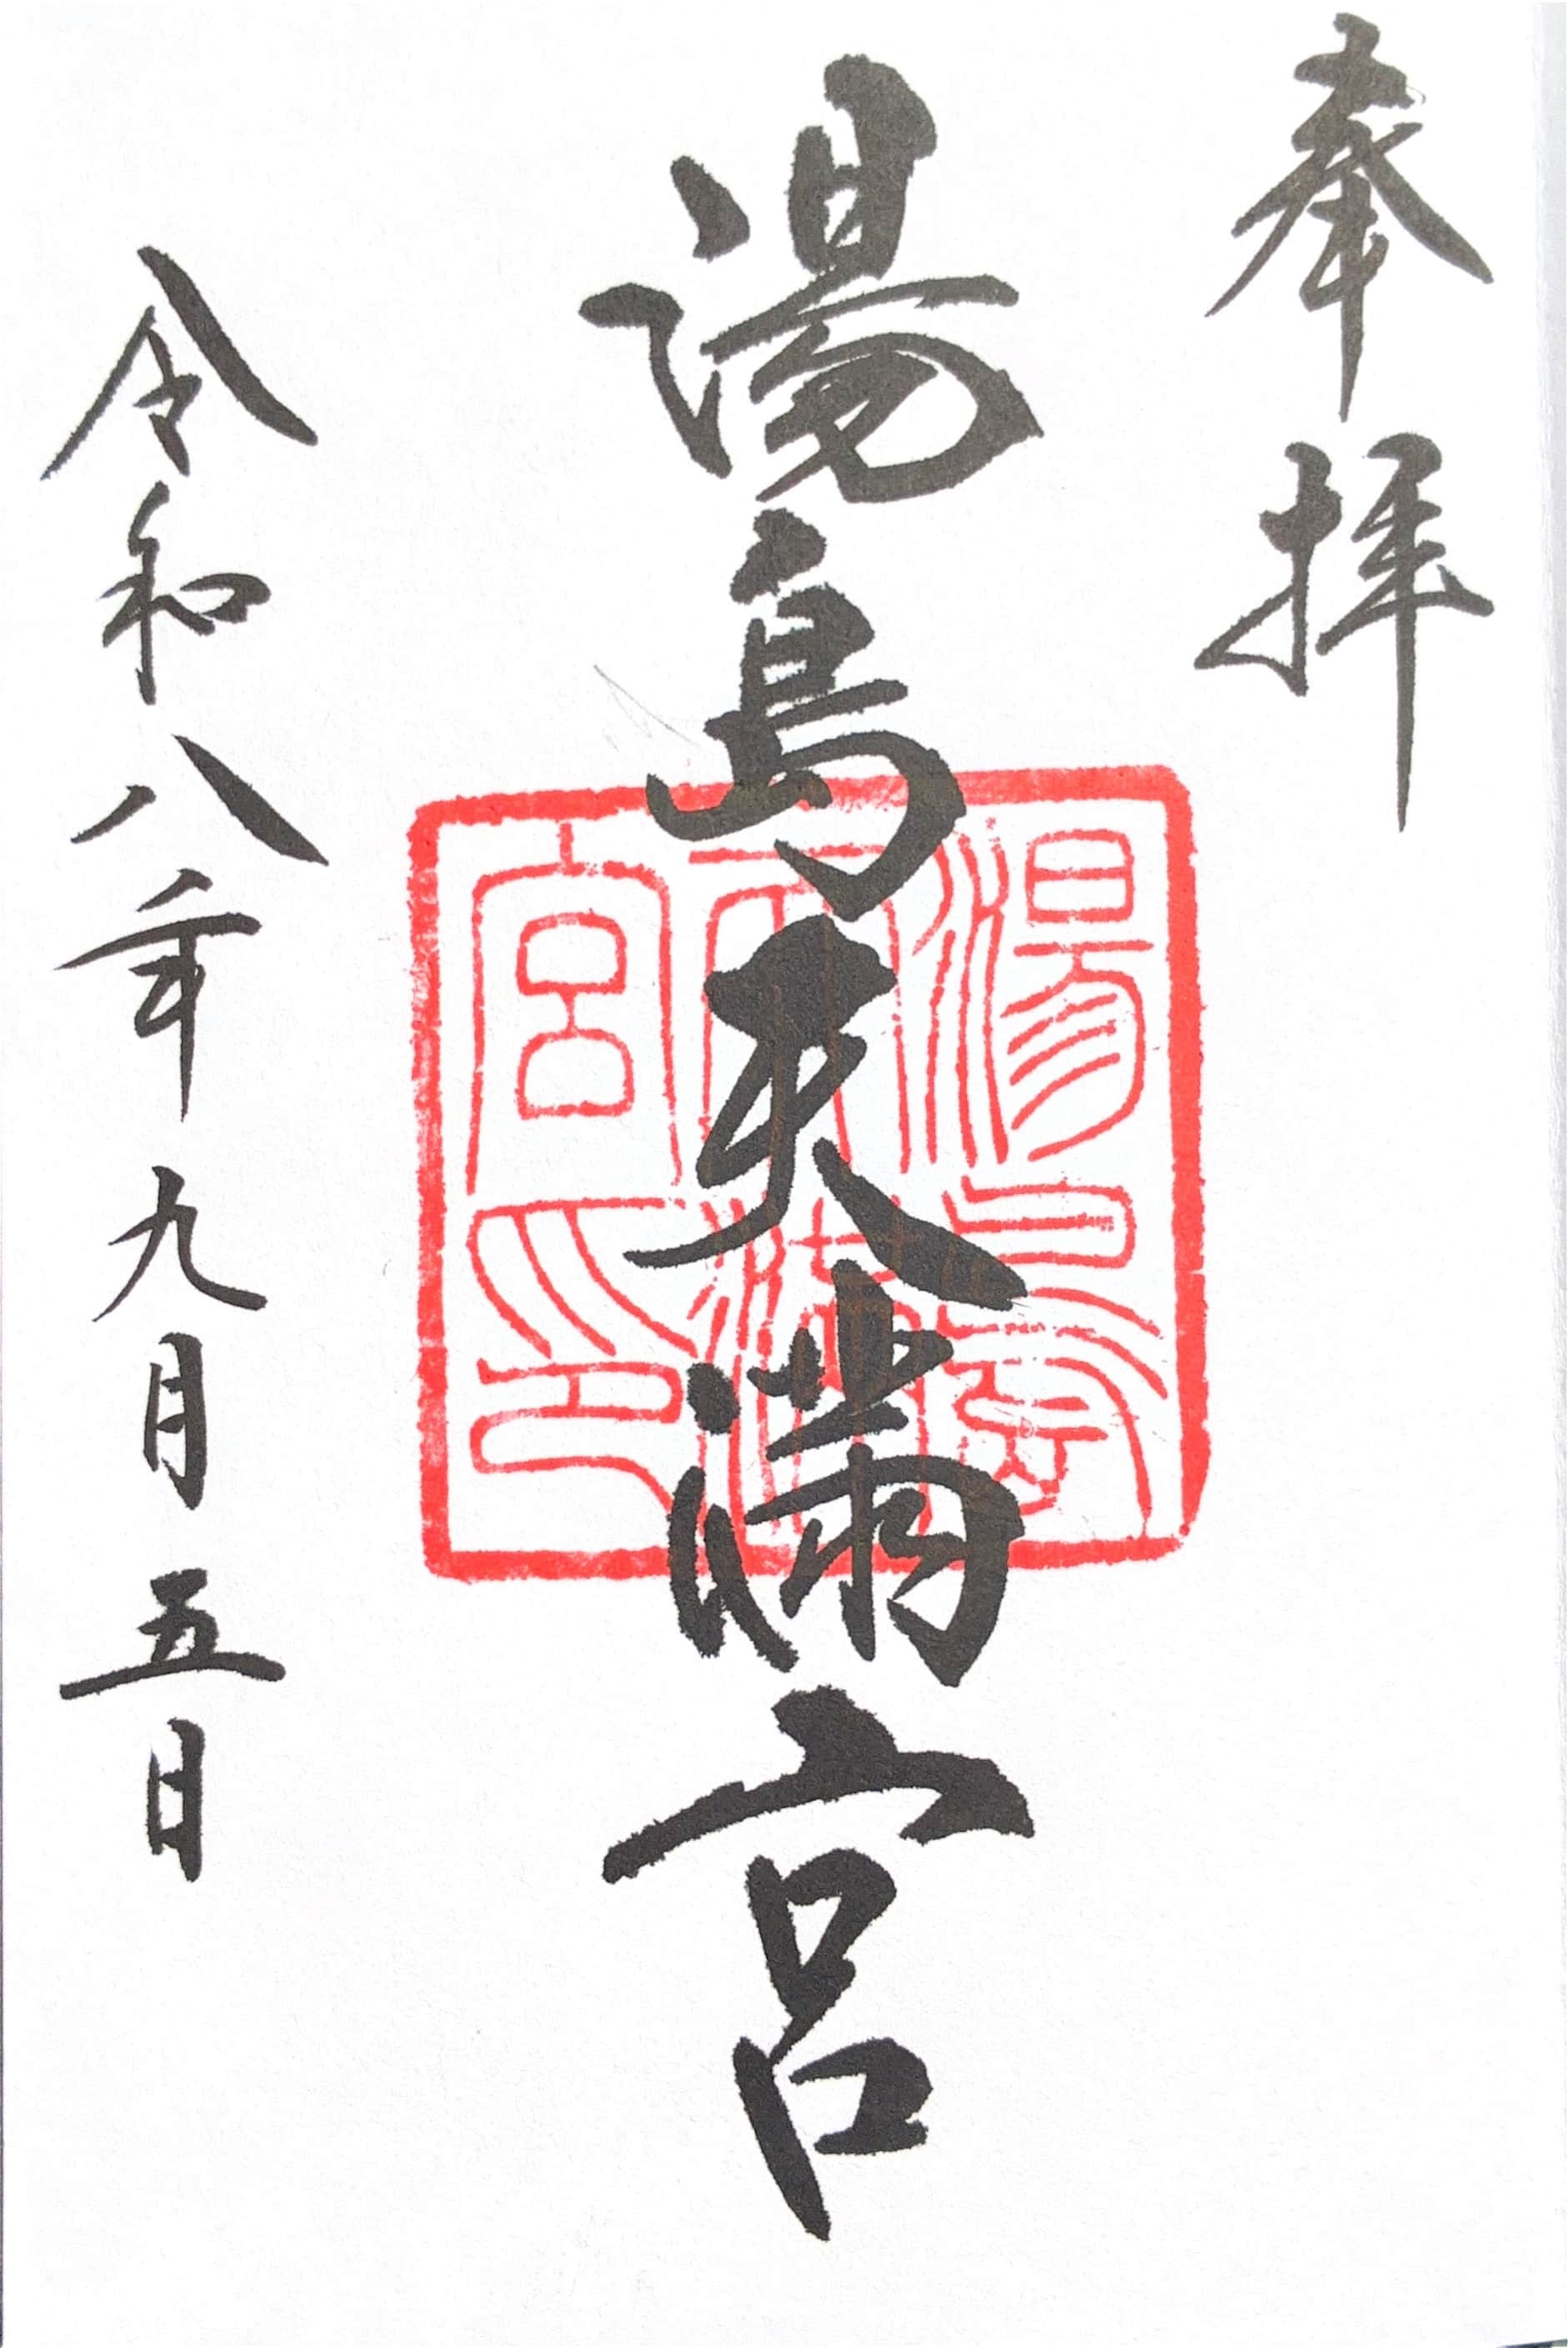 奉拝
湯島天満宮
湯島天満宮印
令和八年九月五日